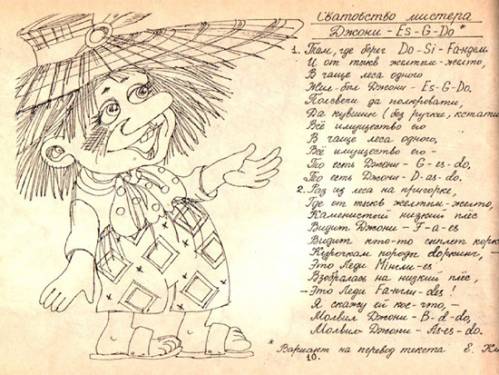 Сватовство мистера
Джони - Es - G - Do*
1. Там, где берег Do - Si - Fандели
И от тыкв желтым-желто,
В чаще леса одного
Жил-был Джони - Es - G - Do.
Полсвечи да полкровати,
Да кувшинс (без ручки, кстати
Всё имущество его
В чаще леса одного,
Всё имущество его -
То есть Джони - G - es - do,
То есть Джони - D - as - do.
2. Раз из леса на пригорке,
Где от тыков желтым-желто,
Каменистый низкий плёс
Видит Джони - F - a - es
Видит кто-то сыплет корк
Курочкам породы доркинг, -
Это Леди Мінgли - es
Взобралась на низкий плёс,
- Это Леди Fангли - des!
Я скажу ей кое-что, -
Молвил Джони - B - d - do,
Молвил Джони - As - es - do.
* Вариант на перевод текста Е. Кл
10.